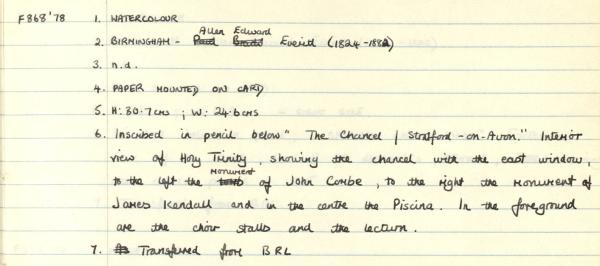 F868'78 1. WATERCOLOUR
Allen Edward
2. BIRMINGHAM - Everitt (1824-1882)
3. n.d.
4. PAPER MOUNTED ON CARD
5. H: 30.7cms ; W: 24.6cms
6. Inscribed in pencil below "The Chancel / Stratford-on-Avon." Interior
view of Holy Trinity, showing the chancel with the east window,
monument
to the left the tomb of John Combe, to the right the monument of
James Kendall and in the centre the Piscina. In the foreground
are the choir stalls and the lectern.
7. Transferred from BRL